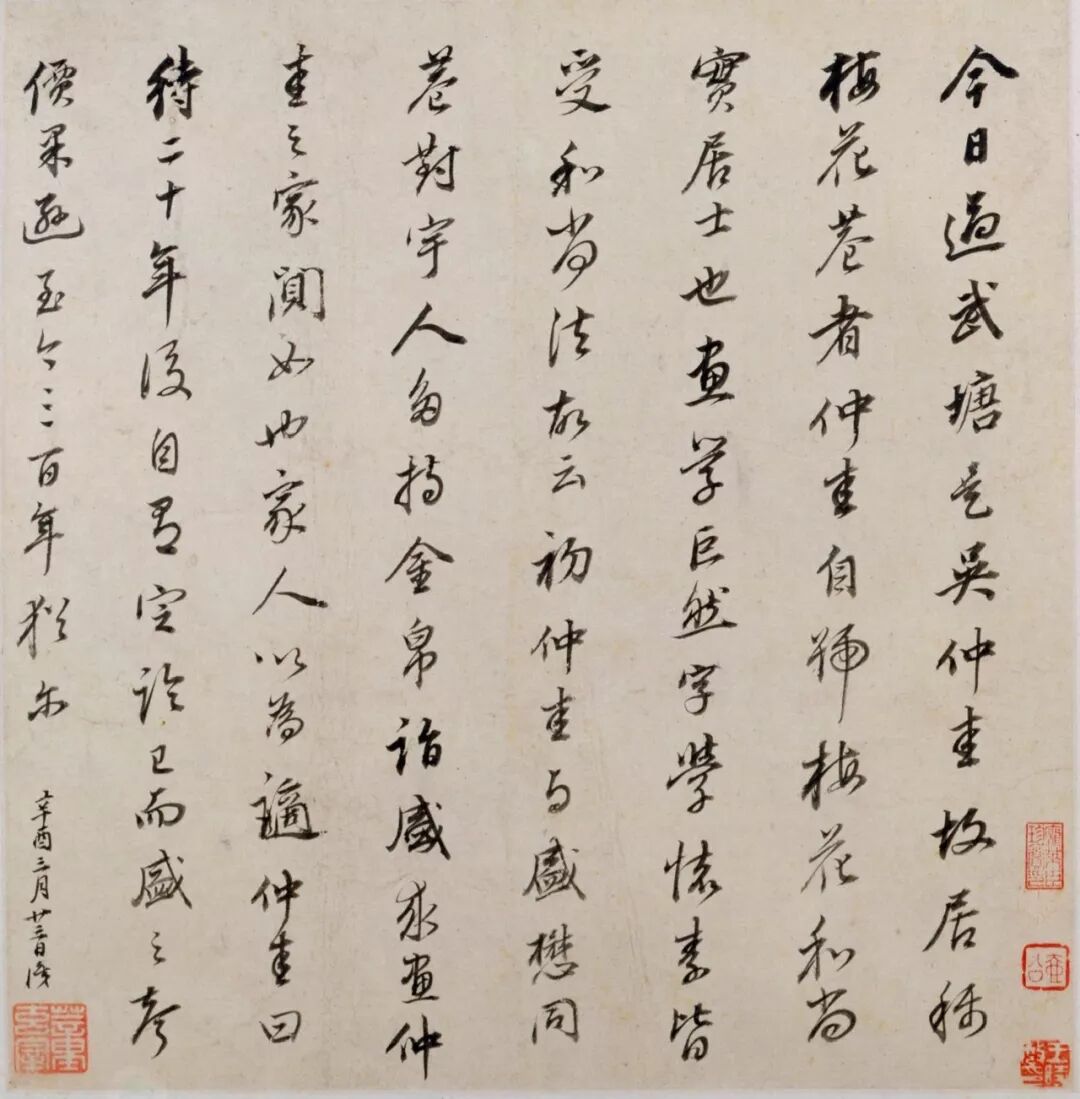 今日過武塘是吳仲圭故居稱
梅花菴者仲圭自號梅花和尚
實居士也畫學巨然字學懷素皆
受和尚法故云初仲圭与盛懋同
菴對宇人多持金帛詣盛求畫仲
圭之家闃如也家人以為讁仲圭曰
待二十年後自有定論已而盛之聲
價果遜至今三百年猶尔
辛酉三月廿三日識